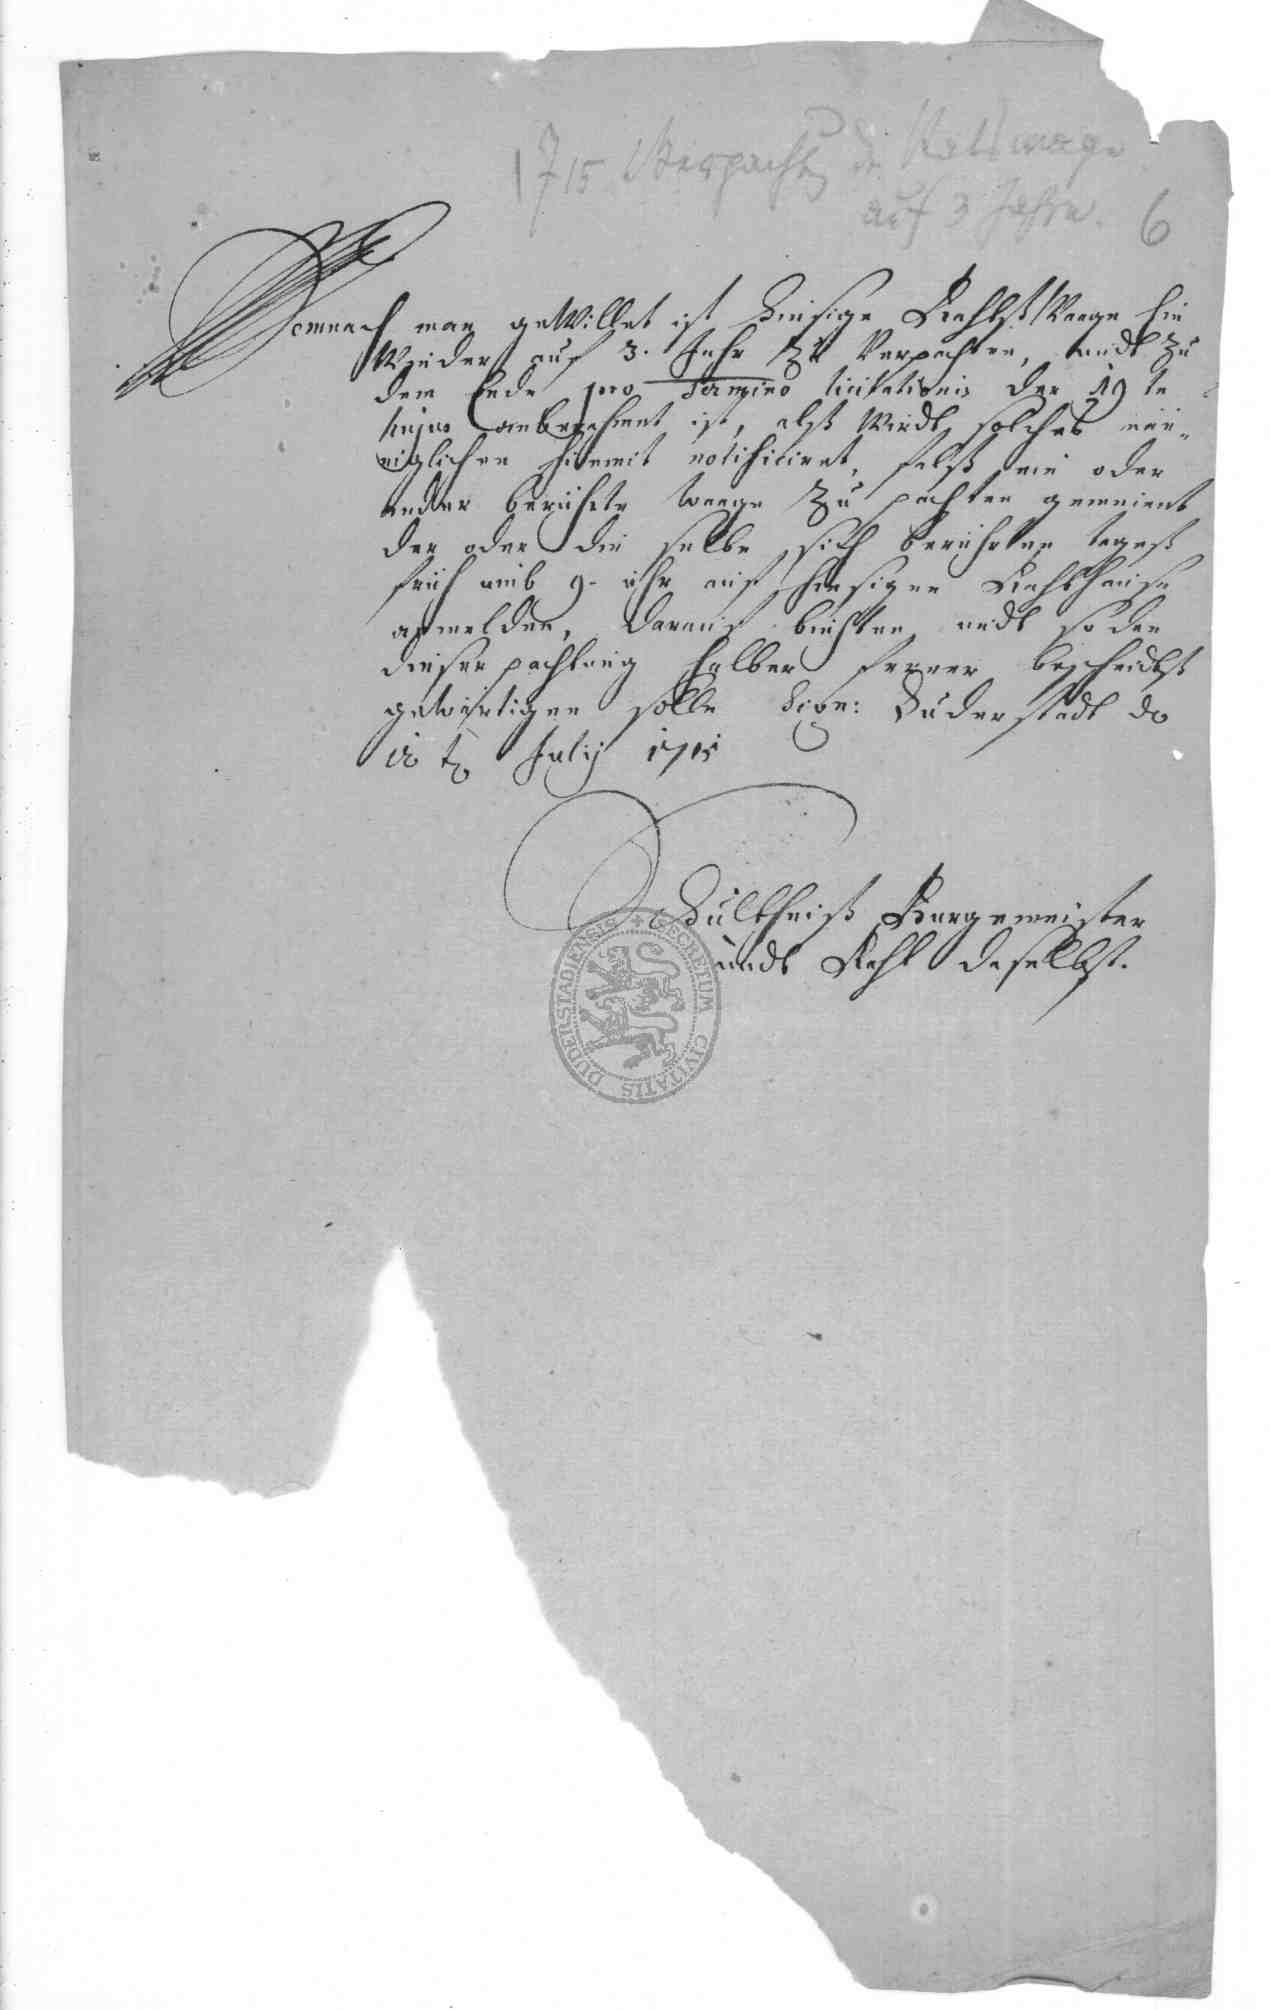 1715 Verpachtg der Ratswage
auf 3 Jahre. 6
Demnach man gewillet ist hiesige Rahtß Waage hin
Wieder auf 3. Jahr zu Verpachten, undt zu
dem Ende pro termino licitationis der 19 te
hujus anberahmet ist, alß Wirdt solches män-
niglichen hiemit notificiret, falß ein oder
ander berührte waage zu pachten gemeient
der oder die selbe sich berührten tageß
früh umb 9. uhr auf hiesigen Rahthause
anmelden, darauf biehten undt so dan
dieser pachtung halber ferner bescheidtß
gewärtigen solle Sign: Duderstadt d
12 t July 1715
Schultheiß Burgemeister
undt Raht daselbst.
SECRETUM CIVITATIS DUDERSTADIENSIS